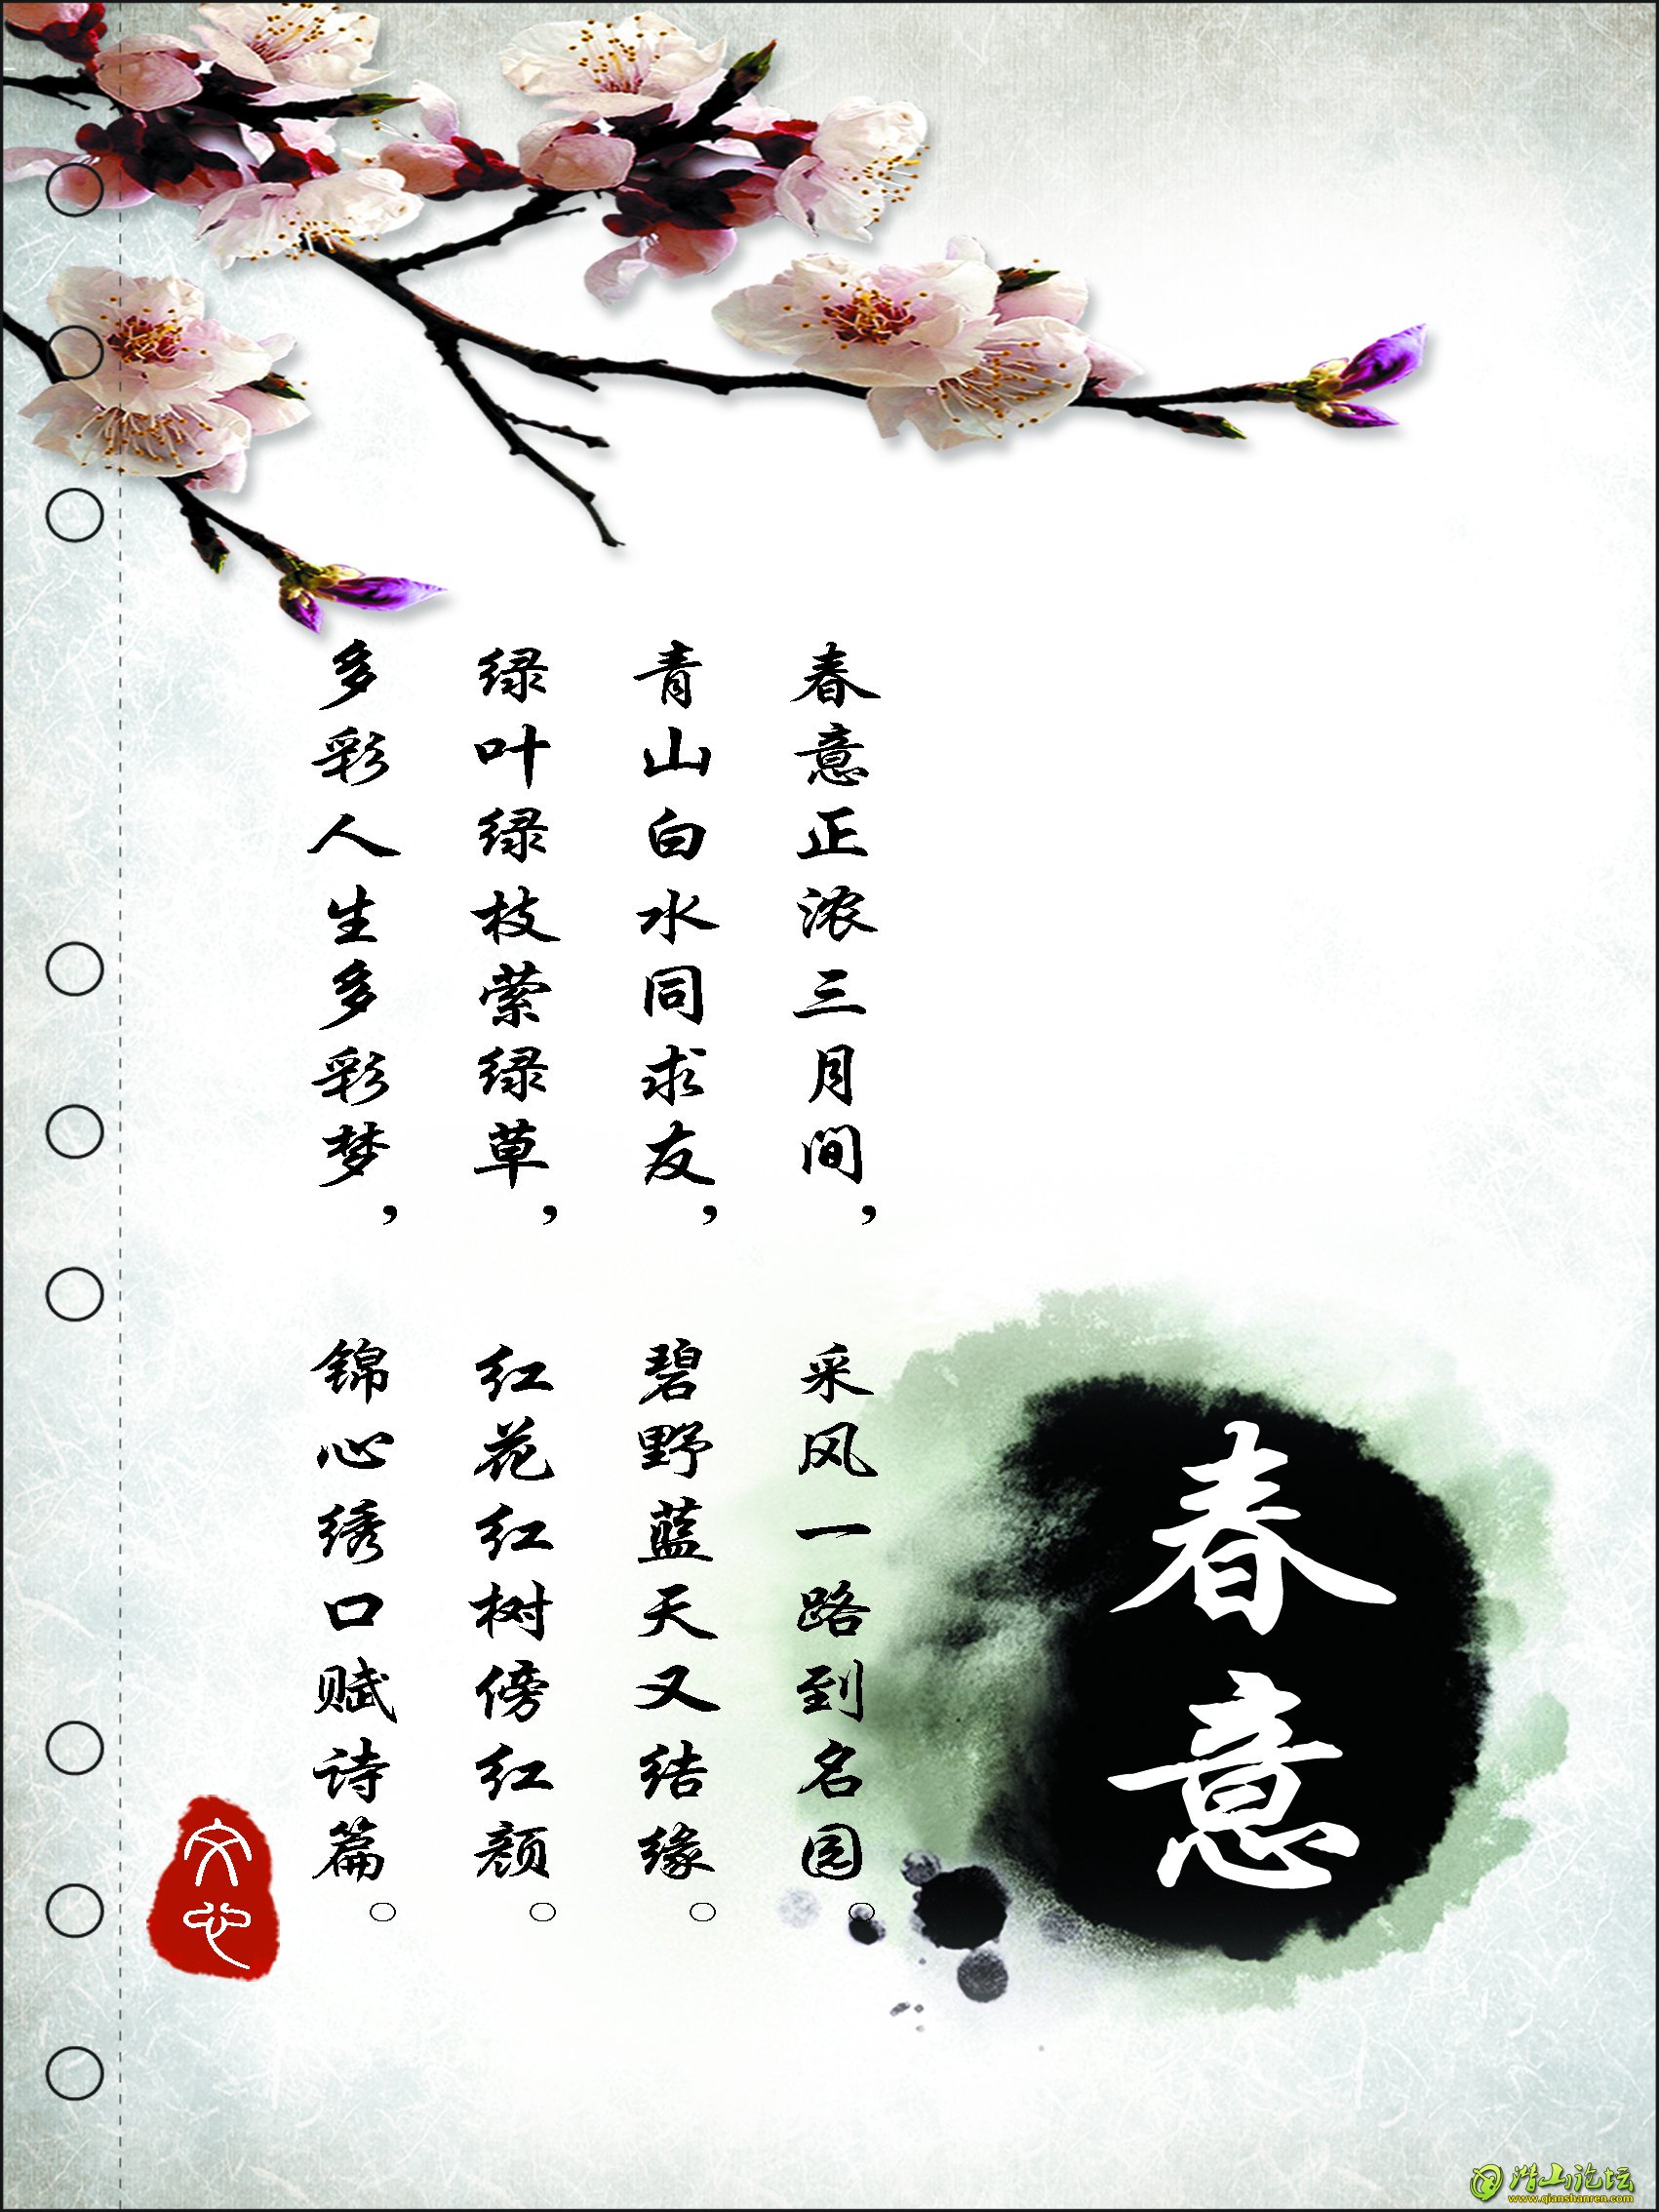 春意
春意正浓三月间，
采风一路到名园。
青山白水同求友，
碧野蓝天又结缘。
绿叶绿枝萦绿草，
红花红树傍红颜。
多彩人生多彩梦，
锦心绣口赋诗篇。
文心
潜山论坛
www.qianshanren.com